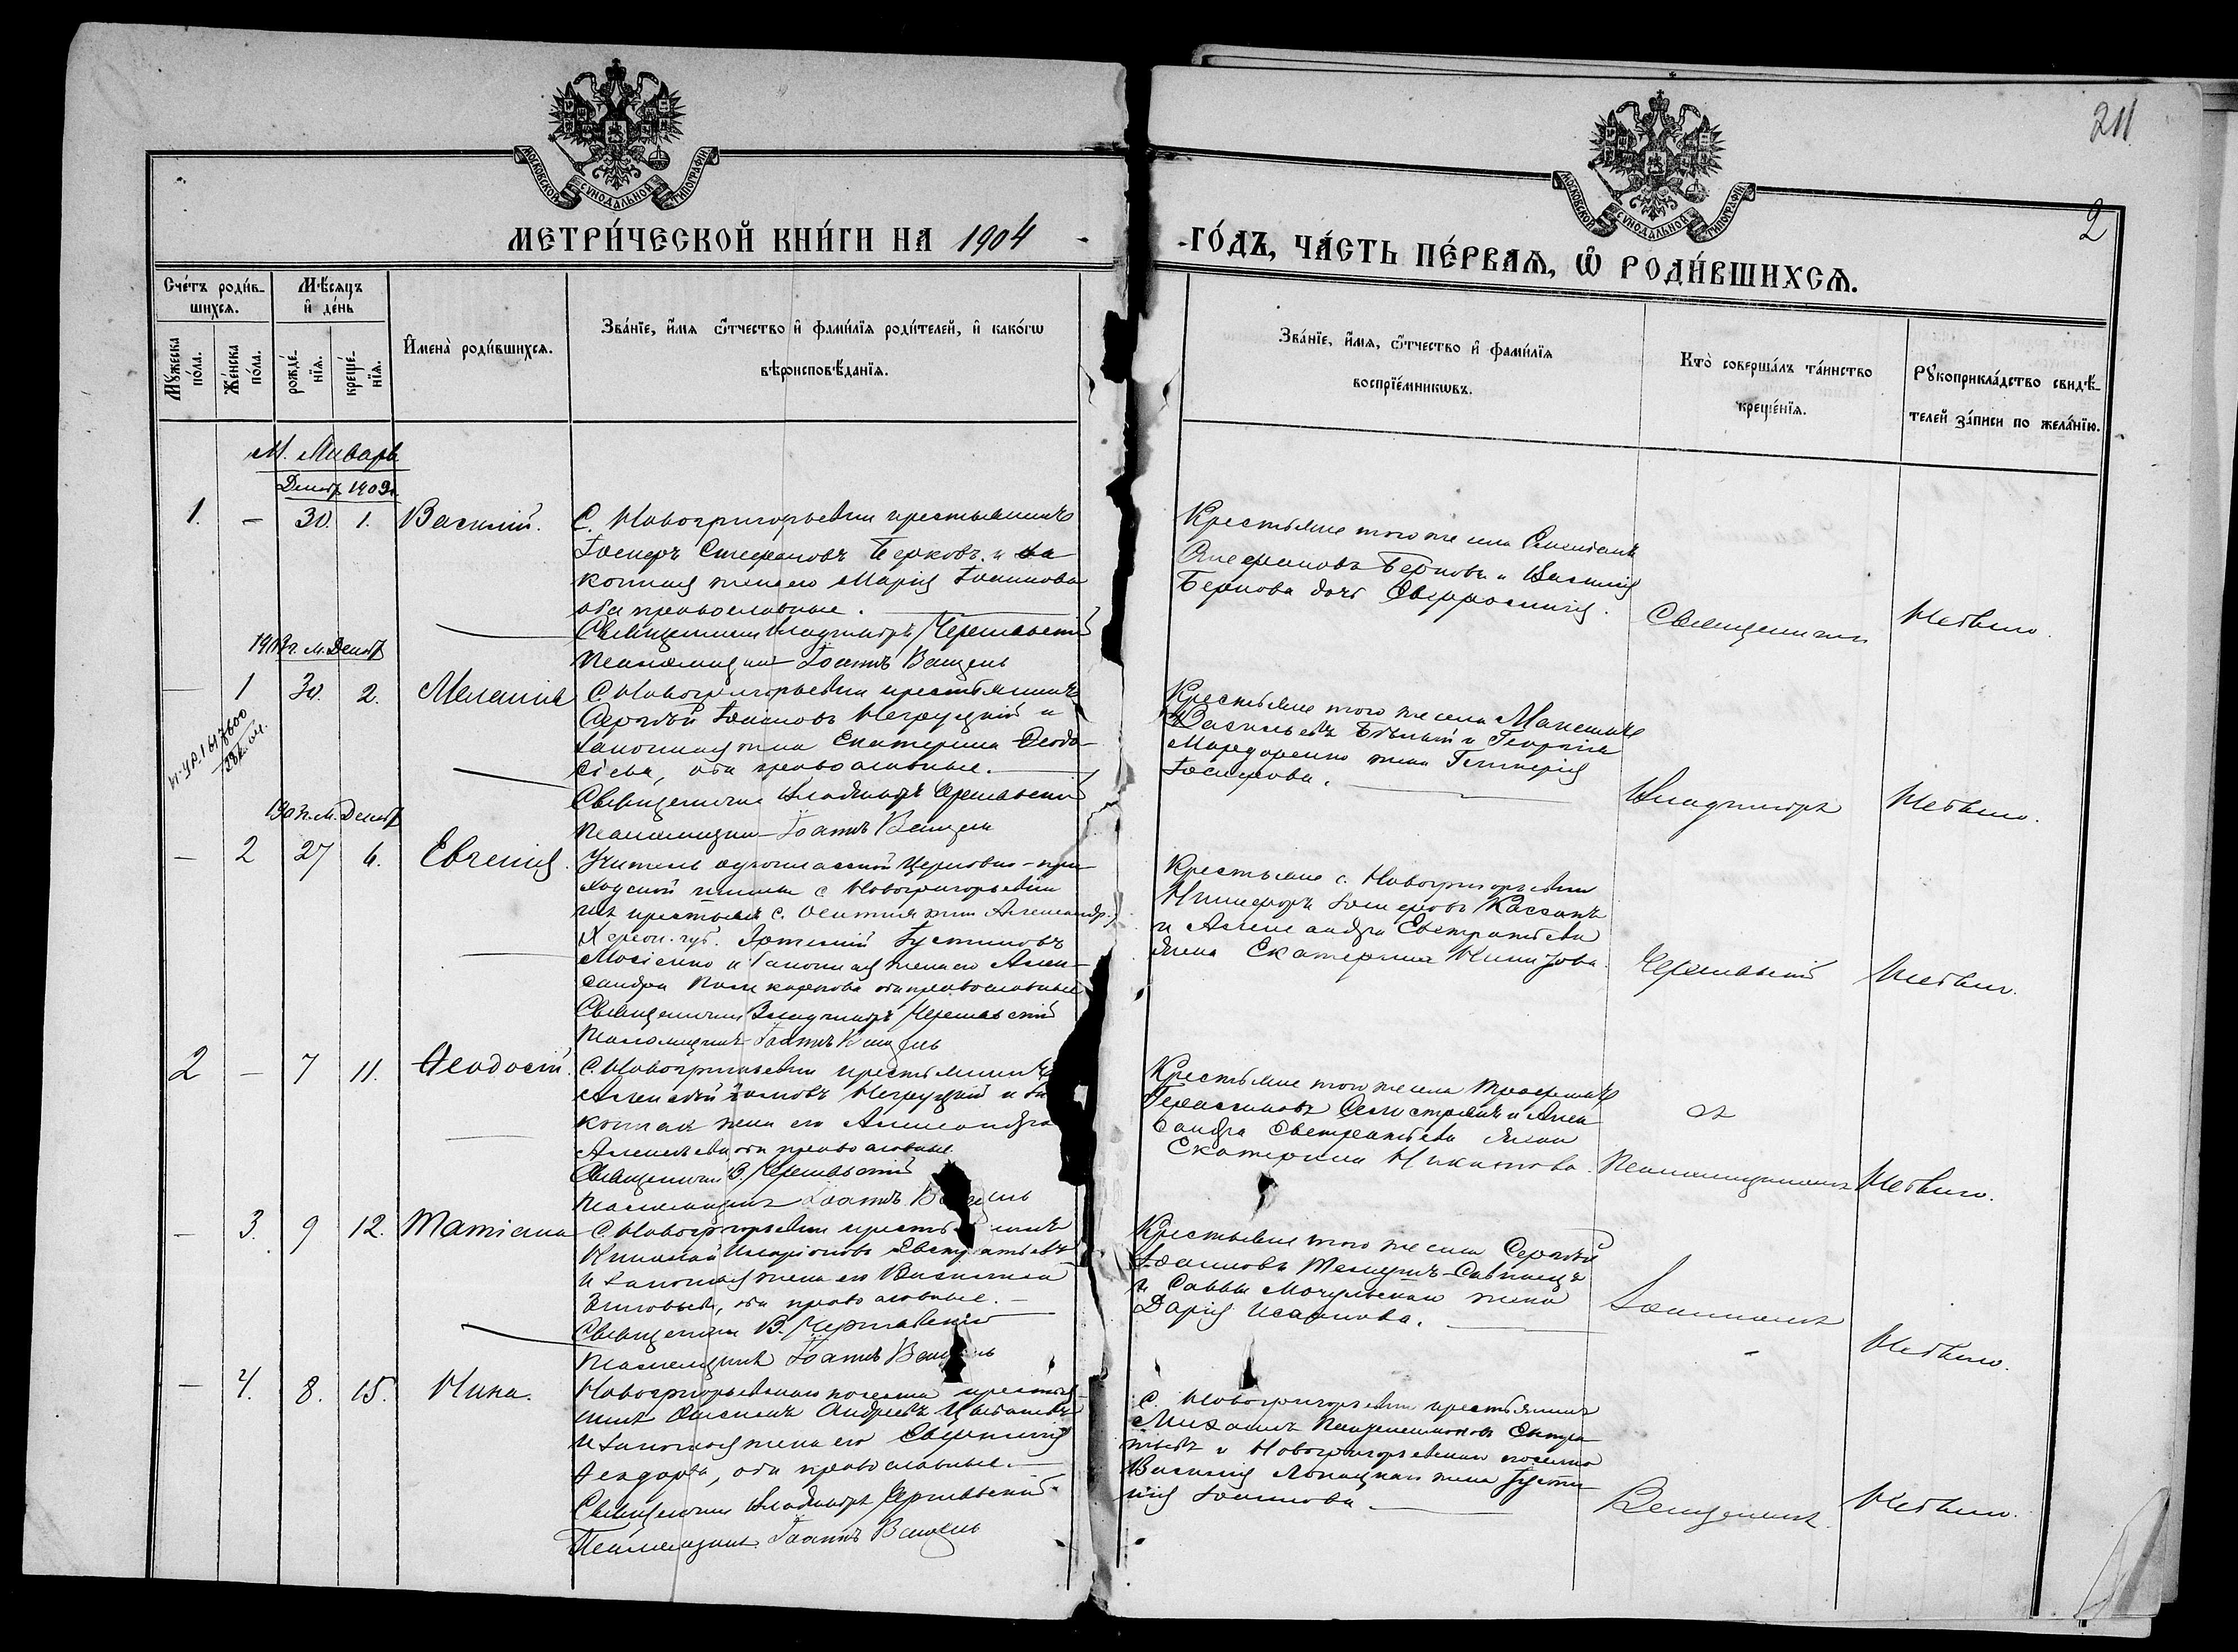 211
2
МОСКОВСКОЙ СѴНОДАЛЬНОЙ ТИПОГРАФІИ
МОСКОВСКОЙ СѴНОДАЛЬНОЙ ТИПОГРАФІИ
МЕТРИ́ЧЕСКОЙ КНИ́ГИ НА 1904
ГО́ДЪ, ЧА́СТЬ ПЕ́РВАѦ, Ѡ РОДИ́ВШИХСѦ.
Сче́тъ роди́в-
шихсѧ.
Мꙋ́жеска
по́ла.
Же́нска
по́ла.
Мѣ́сѧцъ
и҆ де́нь
рожде́-
нїѧ.
креще́-
нїѧ.
И҆мена̀ роди́вшихсѧ.
Зва́нїе, и҆́мѧ ѻ҆́тчество и҆ фами́лїѧ роди́телей, и҆ како́гѡ
вѣроисповѣ́данїѧ.
Зва́нїе, и҆́мѧ, ѻ҆́тчество и҆ фами́лїѧ
воспрїе́мникѡвъ.
Кто̀ соверша́лъ та́инство
креще́нїѧ.
Рꙋкоприкла́дство свидѣ́-
телей за́писи по жела́нїю.
М. Январь
Декабр 1903г.
1. — 30. 1. Василій.
С. Новогригорьевки крестьянинъ
Іосифъ Стефановъ Берковъ и за
конная жена его Марія Іоаннова
оба православные.
Священникъ Владиміръ Чернявскій
Псаломщикъ Іоаннъ Ващель
Крестьяне того же села
Стефановъ Берковъ и Василія
Беркова дочь Евфросинія.
Священникъ
Не было.
1903г. м. Декабр
— 1 30. 2. Меланія
С. Новогригорьевки крестьянинъ
Сергѣй Іоанновъ Негруцкій и
законная жена Екатерина Ѳеодо-
сіева, оба православные.
Священникъ Владиміръ Чернявскій
Псаломщикъ Іоаннъ Ващель
Крестьяне того же села
Васильевъ Бѣлый и Георгія
жена Гликерія
Іосифова.
Владиміръ
Не было.
1903г. м. Декабр
— 2 27 6. Евгенія.
Учитель одноклассной Церковно-при-
ходской школы с. Новогригорьевки
изъ крестьянъ с.
Херсон. губ. Артемій Іустиновъ
Мосіенко и законная жена его Алек-
сандра Поликарпова оба православные
Священникъ Владиміръ Чернявскій
Псаломщикъ Іоаннъ Ващель
Крестьяне с. Новогригорьевки
Никифоръ Іосифовъ Кассапъ
и Александра Евстратьева
жена Екатерина
Чернявскій
Не было.
2 — 7 11. Ѳеодосій.
С. Новогригорьевки крестьянинъ
Алексѣй Іоанновъ Негруцкій и за
конная жена его Александра
Алексѣева оба православные
Священникъ В. Чернявскій
Псаломщикъ Іоаннъ Ващель
Крестьяне того же села Трофимъ
Герасимовъ и Алек
сандра Евстратьева жена
Екатерина
съ
Псаломщикомъ
Не было.
— 3. 9 12. Татіана
С. Новогригорьевки крестьянинъ
Николай Иларіоновъ Евстратьевъ
и законная жена его Василиса
оба православные.
Священникъ В. Чернявскій
Псаломщикъ Іоаннъ Ващель
Крестьяне того же села Сергѣй
Іоанновъ
и Саввы жена
Дарія Исаакова.
Іоанномъ
Не было.
— 4. 8. 15. Нина.
Новогригорьевскаго поселка крестья-
нинъ Андреевъ
и законная жена его Евфимія
оба православные.
Священникъ Владиміръ Чернявскій
Псаломщикъ Іоаннъ Ващель
С. Новогригорьевки крестьянинъ
Михаилъ Пантелеимоновъ Евстра
тьевъ и Новогригорьевскаго поселка
Василія жена Іусти
нія Іоаннова.
Ващелемъ.
Не было.